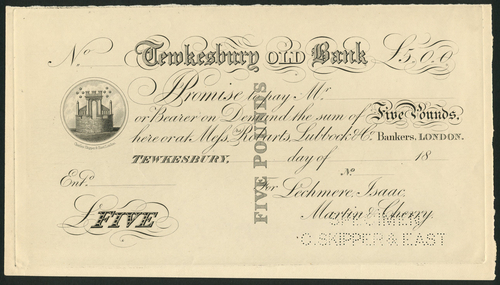 No Tewkesbury OLD Bank £5,0,0
I Promise to pay Mr
or Bearer on Demand the sum of Five Pounds,
here or at Messrs. Robarts, Lubbock & Co. Bankers. LONDON.
TEWKESBURY, day of 18
No
Entd. For Lechmere, Isaac,
£ FIVE Martin & Cherry.
FIVE POUNDS
SPECIMEN
C. SKIPPER & EAST